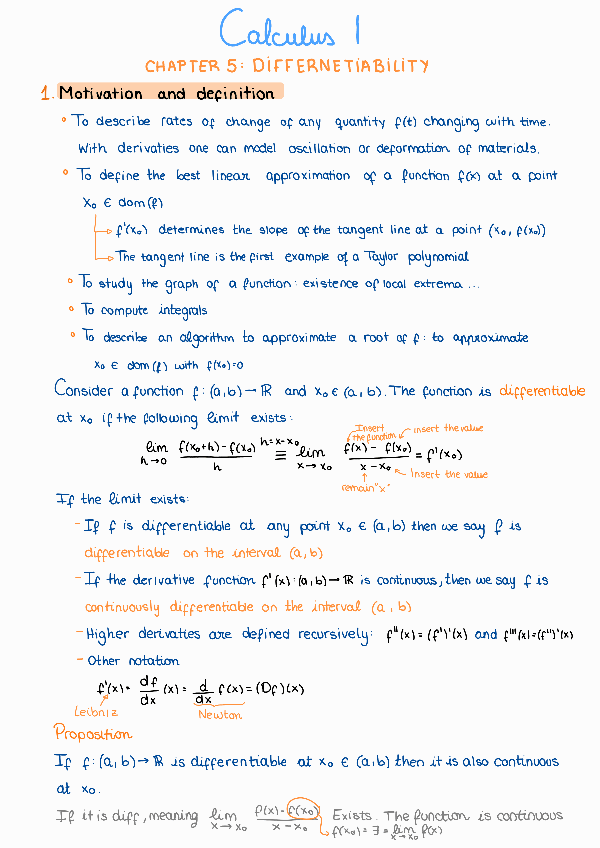 Calculus 1
CHAPTER 5: DIFFERNETIABILITY
1. Motivation and definition
• To describe rates of change of any quantity f(t) changing with time.
With derivaties one can model oscillation or deformation of materials.
• To define the best linear approximation of a function f(x) at a point
x₀ ∈ dom(f)
→ f'(x₀) determines the slope of the tangent line at a point (x₀, f(x₀))
→ The tangent line is the first example of a Taylor polynomial
• To study the graph of a function: existence of local extrema ...
• To compute integrals
• To describe an algorithm to approximate a root of f: to approximate
x₀ ∈ dom(f) with f(x₀)=0
Consider a function f:(a,b)→ℝ and x₀∈(a,b). The function is differentiable
at x₀ if the following limit exists:
Insert the function
insert the value
lim h→0 (f(x₀+h)-f(x₀))/h h=x-x₀ ≡ lim x→x₀ (f(x)-f(x₀))/(x-x₀) = f'(x₀)
Insert the value
remain "x"
If the limit exists:
- If f is differentiable at any point x₀ ∈ (a,b) then we say f is
differentiable on the interval (a,b)
- If the derivative function f'(x):(a,b)→ℝ is continuous, then we say f is
continuously differentiable on the interval (a,b)
- Higher derivaties are defined recursively: f''(x)=(f')'(x) and f'''(x)=(f'')'(x)
- Other notation
f'(x)= df/dx (x)= d/dx f(x)=(Df)(x)
Leibniz Newton
Proposition
If f:(a,b)→ℝ is differentiable at x₀ ∈ (a,b) then it is also continuous
at x₀.
If it is diff, meaning lim x→x₀ (f(x)-f(x₀))/(x-x₀) Exists. The function is continuous
f(x₀)=∃=lim x→x₀ f(x)